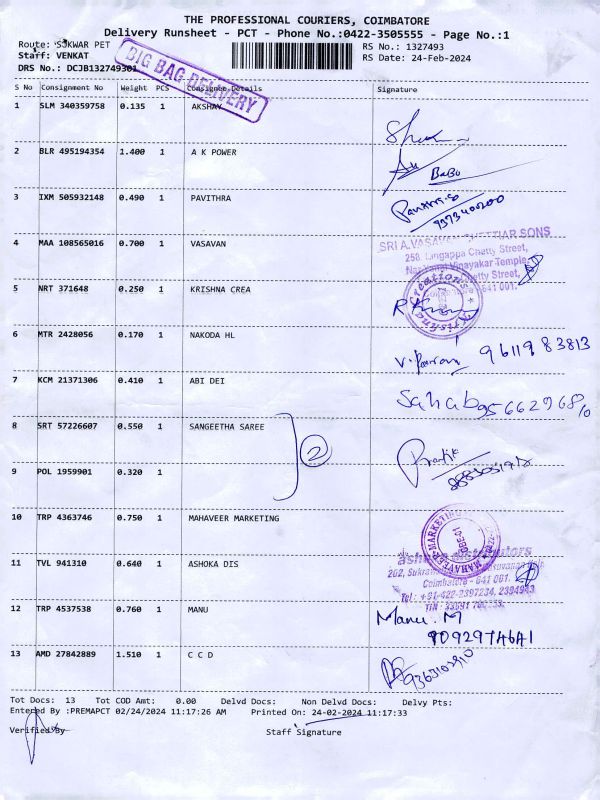 THE PROFESSIONAL COURIERS, COIMBATORE
Delivery Runsheet - PCT - Phone No.:0422-3505555 - Page No.:1
Route: SUKWAR PET
RS No.: 1327493
Staff: VENKAT
RS Date: 24-Feb-2024
DRS No.: DCJB132749301
BIG BAG DELIVERY
S No Consignment No Weight PCS Consignee Details Signature
1 SLM 340359758 0.135 1 AKSHAY
2 BLR 495194354 1.400 1 A K POWER
BaBu
3 IXM 505932148 0.490 1 PAVITHRA
4 MAA 108565016 0.700 1 VASAVAN
SRI A.VASAVAN CHETTIAR SONS
258, Lingappa Chetty Street,
Vinayakar Temple,
Chetty Street,
641 001.
5 NRT 371648 0.250 1 KRISHNA CREA
Krishna Creations
6 MTR 2428056 0.170 1 NAKODA HL
9611983813
7 KCM 21371306 0.410 1 ABI DEI
Sahab
8 SRT 57226607 0.550 1 SANGEETHA SAREE
2
Pratik
9 POL 1959901 0.320 1
10 TRP 4363746 0.750 1 MAHAVEER MARKETING
MAHAVEER MARKETING
11 TVL 941310 0.640 1 ASHOKA DIS
Coimbatore - 641 001.
Tel : +91-422-2397234, 2394943
12 TRP 4537538 0.760 1 MANU
Manu. M
9092974641
13 AMD 27842889 1.510 1 C C D
Tot Docs: 13 Tot COD Amt: 0.00 Delvd Docs: Non Delvd Docs: Delvy Pts:
Entered By :PREMAPCT 02/24/2024 11:17:26 AM Printed On: 24-02-2024 11:17:33
Verified By
Staff Signature